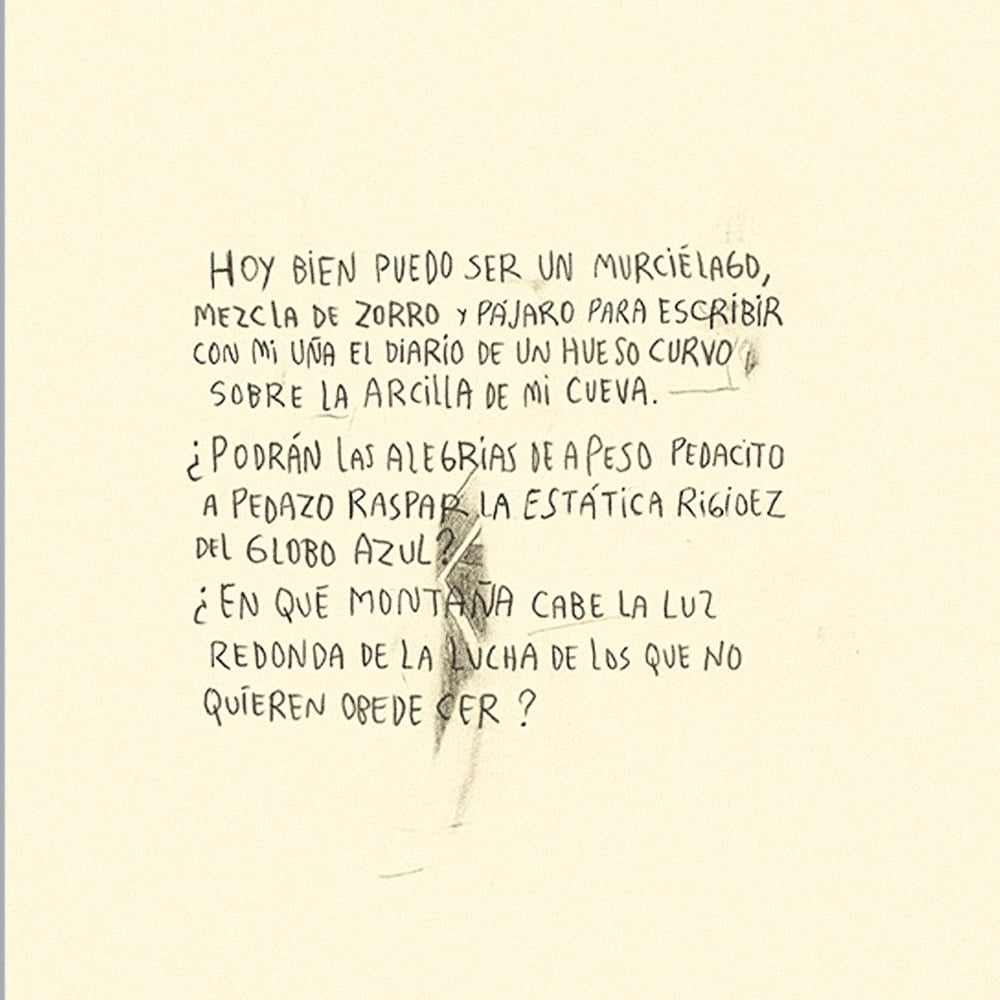 HOY BIEN PUEDO SER UN MURCIÉLAGO,
MEZCLA DE ZORRO Y PÁJARO PARA ESCRIBIR
CON MI UÑA EL DIARIO DE UN HUESO CURVO
SOBRE LA ARCILLA DE MI CUEVA.
¿PODRÁN LAS ALEGRÍAS DE A PESO PEDACITO
A PEDAZO RASPAR LA ESTÁTICA RIGIDEZ
DEL GLOBO AZUL?
¿EN QUÉ MONTAÑA CABE LA LUZ
REDONDA DE LA LUCHA DE LOS QUE NO
QUIEREN OBEDECER?